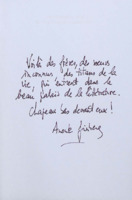 Voilà des frères, des sœurs
inconnus, des titans de la
vie, qui entrent dans le
beau palais de la littérature.
Chapeau bas devant eux !